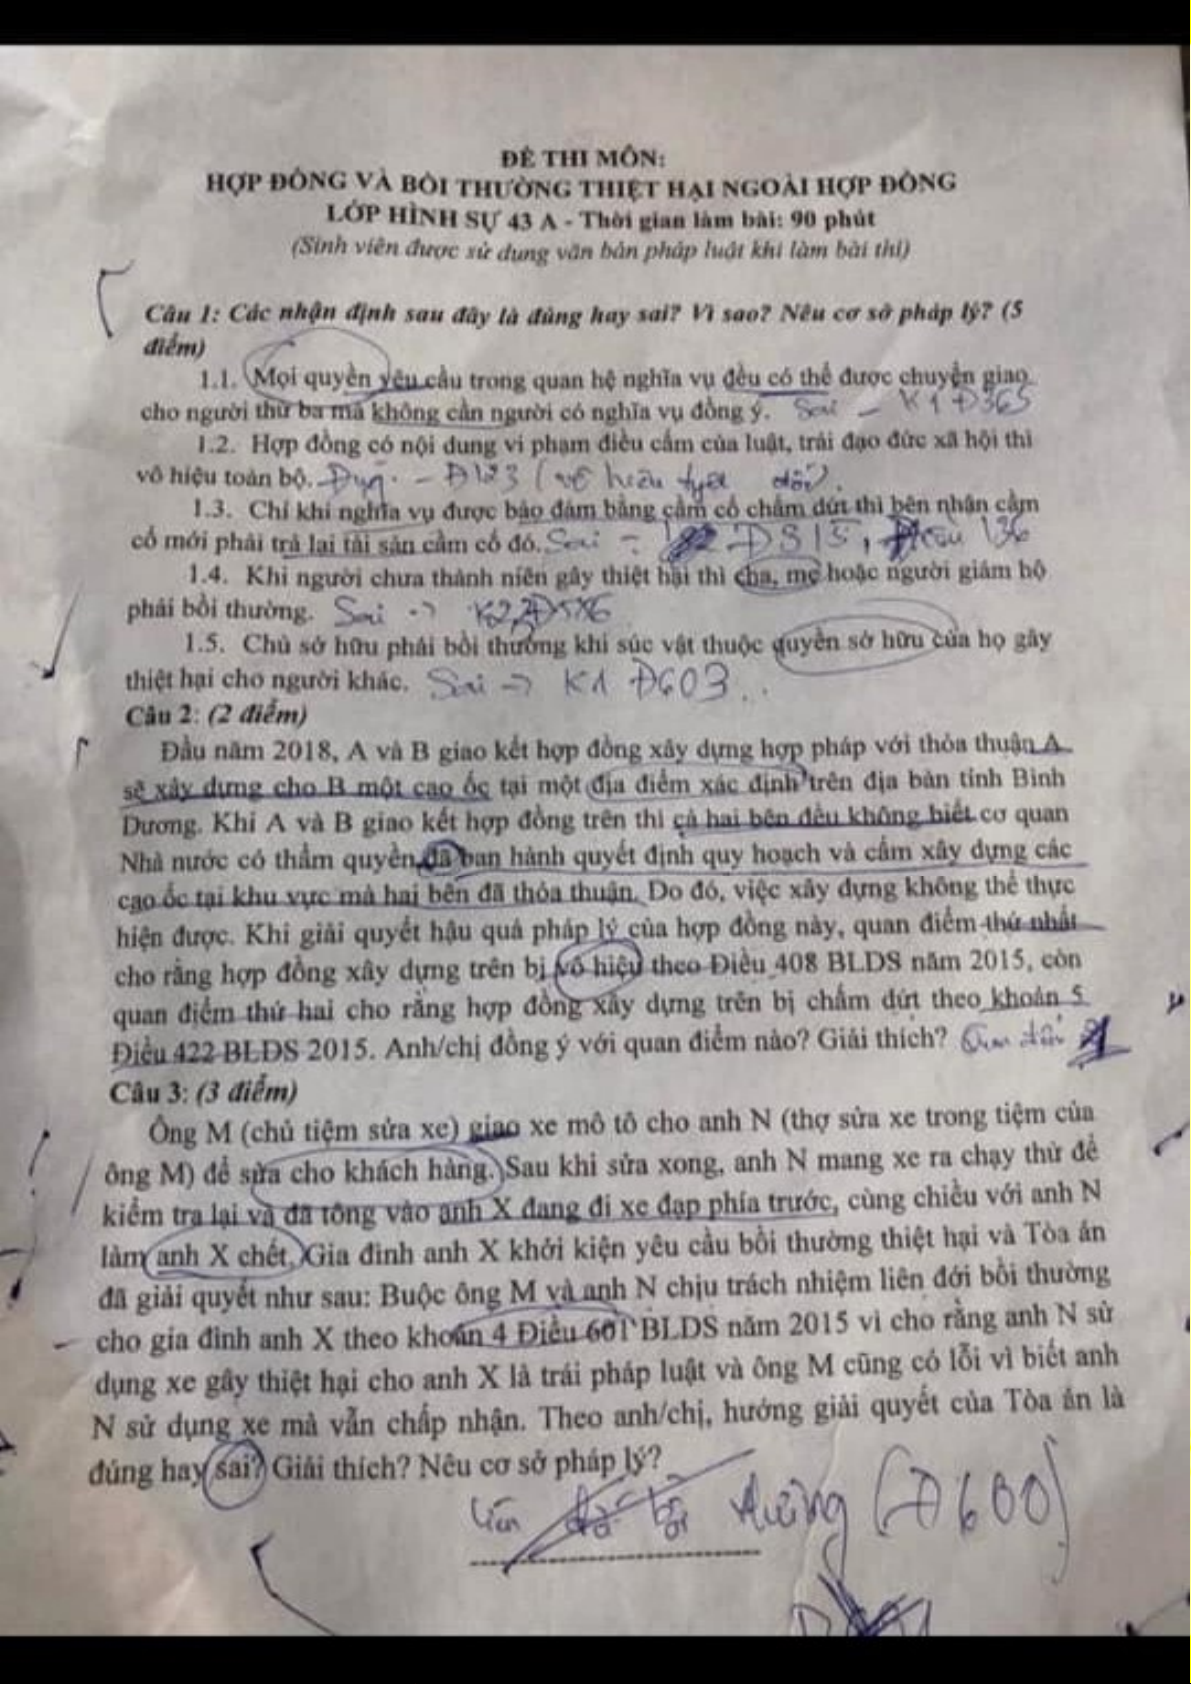 ĐỀ THI MÔN:
HỢP ĐỒNG VÀ BỒI THƯỜNG THIỆT HẠI NGOÀI HỢP ĐỒNG
LỚP HÌNH SỰ 43 A - Thời gian làm bài: 90 phút
(Sinh viên được sử dụng văn bản pháp luật khi làm bài thi)
Câu 1: Các nhận định sau đây là đúng hay sai? Vì sao? Nêu cơ sở pháp lý? (5
điểm)
1.1. Mọi quyền yêu cầu trong quan hệ nghĩa vụ đều có thể được chuyển giao
cho người thứ ba mà không cần người có nghĩa vụ đồng ý. Sai - K1 Đ365
1.2. Hợp đồng có nội dung vi phạm điều cấm của luật, trái đạo đức xã hội thì
vô hiệu toàn bộ. Đúng. - Đ123 (vô hiệu tuyệt đối).
1.3. Chỉ khi nghĩa vụ được bảo đảm bằng cầm cố chấm dứt thì bên nhận cầm
cố mới phải trả lại tài sản cầm cố đó. Sai -
1.4. Khi người chưa thành niên gây thiệt hại thì cha, mẹ hoặc người giám hộ
phải bồi thường. Sai -> K2
1.5. Chủ sở hữu phải bồi thường khi súc vật thuộc quyền sở hữu của họ gây
thiệt hại cho người khác. Sai -> K1 Đ603..
Câu 2: (2 điểm)
Đầu năm 2018, A và B giao kết hợp đồng xây dựng hợp pháp với thỏa thuận A
sẽ xây dựng cho B một cao ốc tại một địa điểm xác định trên địa bàn tỉnh Bình
Dương. Khi A và B giao kết hợp đồng trên thì cả hai bên đều không biết cơ quan
Nhà nước có thẩm quyền đã ban hành quyết định quy hoạch và cấm xây dựng các
cao ốc tại khu vực mà hai bên đã thỏa thuận. Do đó, việc xây dựng không thể thực
hiện được. Khi giải quyết hậu quả pháp lý của hợp đồng này, quan điểm thứ nhất
cho rằng hợp đồng xây dựng trên bị vô hiệu theo Điều 408 BLDS năm 2015, còn
quan điểm thứ hai cho rằng hợp đồng xây dựng trên bị chấm dứt theo khoản 5
Điều 422 BLDS 2015. Anh/chị đồng ý với quan điểm nào? Giải thích?
Câu 3: (3 điểm)
Ông M (chủ tiệm sửa xe) giao xe mô tô cho anh N (thợ sửa xe trong tiệm của
ông M) để sửa cho khách hàng. Sau khi sửa xong, anh N mang xe ra chạy thử để
kiểm tra lại và đã tông vào anh X đang đi xe đạp phía trước, cùng chiều với anh N
làm anh X chết. Gia đình anh X khởi kiện yêu cầu bồi thường thiệt hại và Tòa án
đã giải quyết như sau: Buộc ông M và anh N chịu trách nhiệm liên đới bồi thường
cho gia đình anh X theo khoản 4 Điều 601 BLDS năm 2015 vì cho rằng anh N sử
dụng xe gây thiệt hại cho anh X là trái pháp luật và ông M cũng có lỗi vì biết anh
N sử dụng xe mà vẫn chấp nhận. Theo anh/chị, hướng giải quyết của Tòa án là
đúng hay sai? Giải thích? Nêu cơ sở pháp lý?
bồi thường (Đ600)